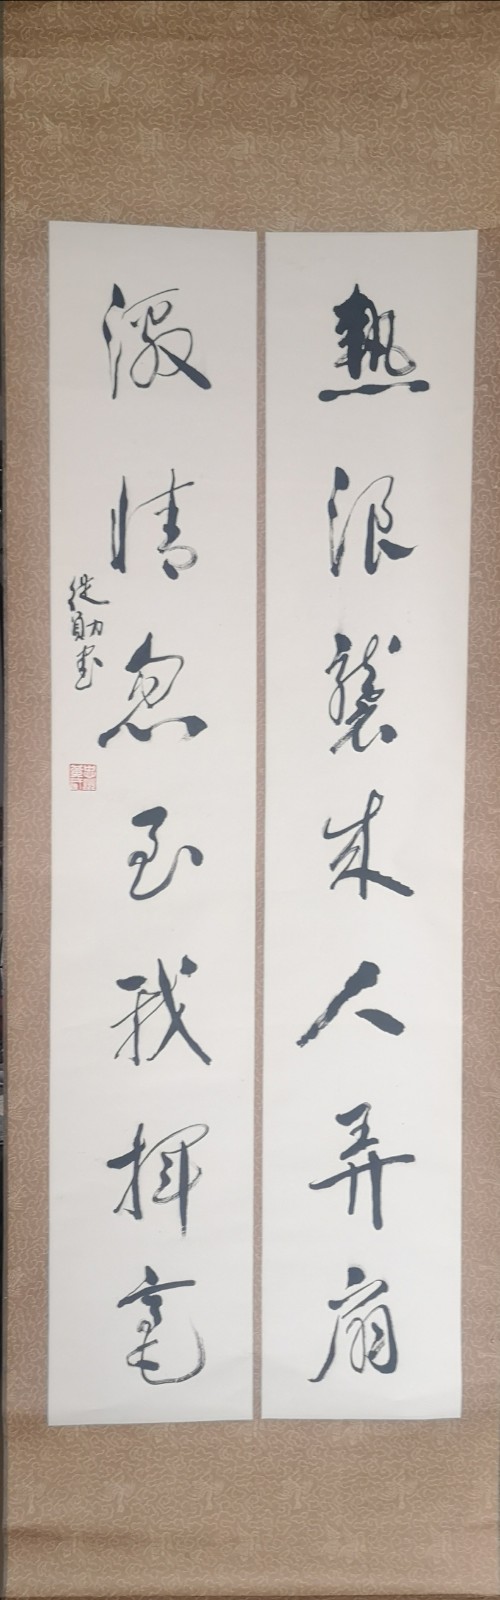 熱浪襲來人弄扇
激情忽至我揮毫
從勛書